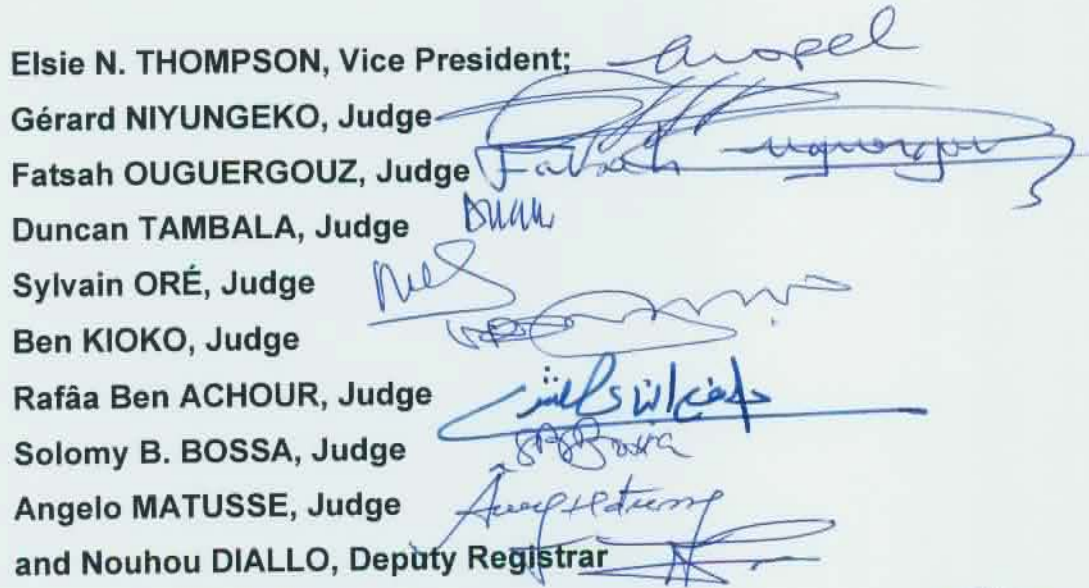 Elsie N. THOMPSON, Vice President;
Gérard NIYUNGEKO, Judge
Fatsah OUGUERGOUZ, Judge
Duncan TAMBALA, Judge
Sylvain ORÉ, Judge
Ben KIOKO, Judge
Rafâa Ben ACHOUR, Judge
Solomy B. BOSSA, Judge
Angelo MATUSSE, Judge
and Nouhou DIALLO, Deputy Registrar